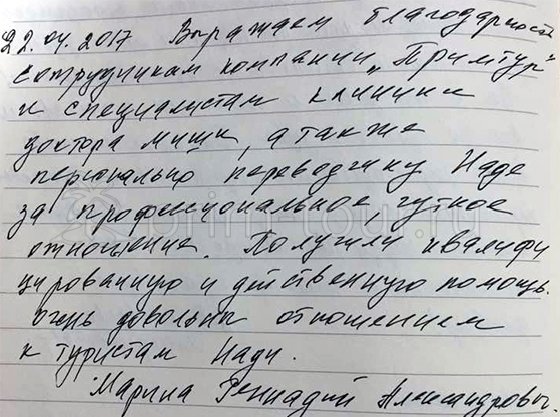 22.04.2017 Выражаем благодарность
сотрудникам компании „Примтур"
и специалистам клиники
доктора Миши, а также
персонально переводчику Наде
за профессиональное, чуткое
отношение. Получили квалифи
цированную и действенную помощь.
Очень довольны отношением
к туристам Нади.
Марина Геннадий Александровы
prim-tour.ru